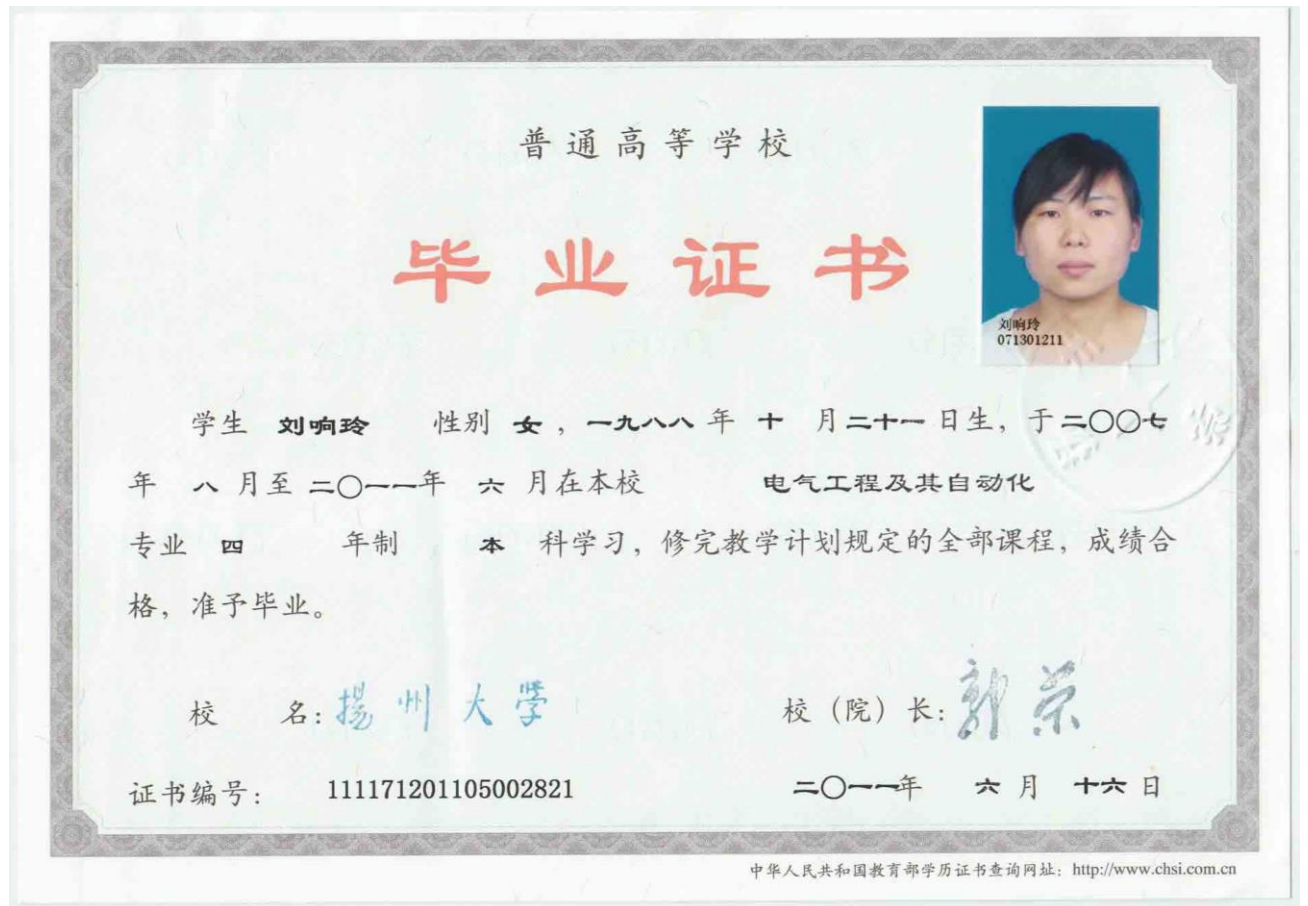 普通高等学校
毕业证书
刘响玲
071301211
学生 刘响玲 性别 女，一九八八年 十 月二十一日生，于二〇〇七
年 八 月至二〇一一年 六 月在本校 电气工程及其自动化
专业 四 年制 本 科学习，修完教学计划规定的全部课程，成绩合
格，准予毕业。
校 名：揚州大学 校（院）长：郭荣
证书编号： 111171201105002821 二〇一一年 六 月 十六 日
中华人民共和国教育部学历证书查询网址：http://www.chsi.com.cn